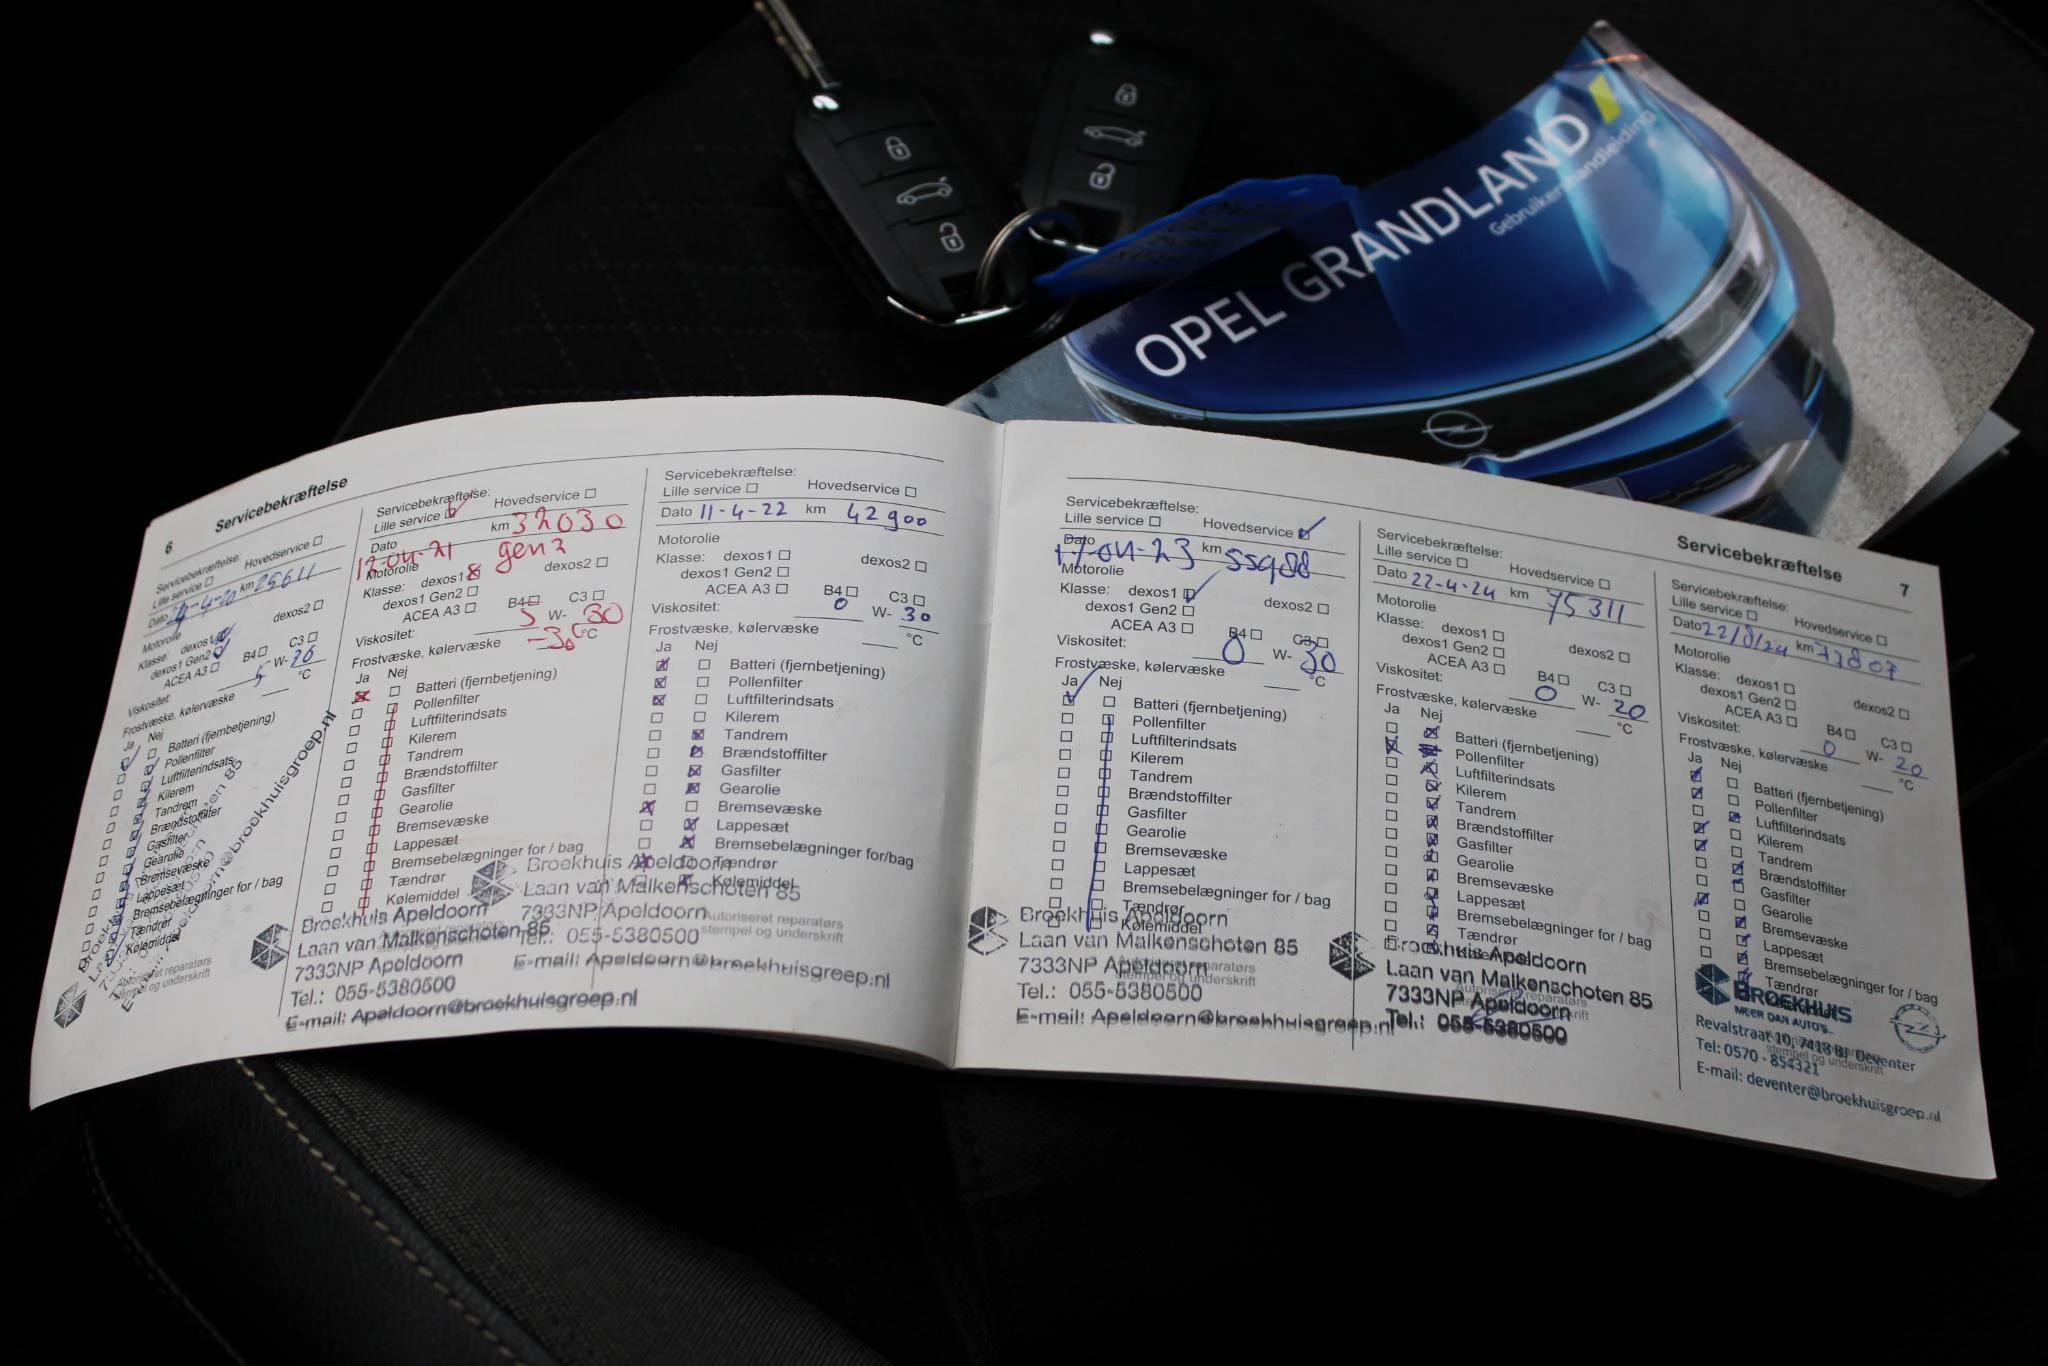 OPEL GRANDLAND
Gebruikershandleiding
6
Servicebekræftelse
Servicebekræftelse:
Lille service Hovedservice
Dato 24-4-20 km 25611
Motorolie
Klasse: dexos1 dexos2
dexos1 Gen2
ACEA A3 B4 C3
Viskositet: 5 W- 30
Frostvæske, kølervæske °C
Ja Nej
Batteri (fjernbetjening)
Pollenfilter
Luftfilterindsats
Kilerem
Tandrem
Brændstoffilter
Gasfilter
Gearolie
Bremsevæske
Lappesæt
Bremsebelægninger for / bag
Tændrør
Kølemiddel
Autoriseret reparatørs
stempel og underskrift
Servicebekræftelse:
Lille service Hovedservice
Dato 12-04-21 km 32030
gen2
Motorolie
Klasse: dexos1 dexos2
dexos1 Gen2
ACEA A3 B4 C3
Viskositet: 5 W- 30
Frostvæske, kølervæske -30 °C
Ja Nej
Batteri (fjernbetjening)
Pollenfilter
Luftfilterindsats
Kilerem
Tandrem
Brændstoffilter
Gasfilter
Gearolie
Bremsevæske
Lappesæt
Bremsebelægninger for / bag
Tændrør
Kølemiddel
Broekhuis Apeldoorn
Laan van Malkenschoten 85
7333NP Apeldoorn
Tel.: 055-5380500
E-mail: Apeldoorn@broekhuisgroep.nl
Servicebekræftelse:
Lille service Hovedservice
Dato 11-4-22 km 42900
Motorolie
Klasse: dexos1 dexos2
dexos1 Gen2
ACEA A3 B4 C3
Viskositet: 0 W- 30
Frostvæske, kølervæske °C
Ja Nej
Batteri (fjernbetjening)
Pollenfilter
Luftfilterindsats
Kilerem
Tandrem
Brændstoffilter
Gasfilter
Gearolie
Bremsevæske
Lappesæt
Bremsebelægninger for/bag
Tændrør
Kølemiddel
Autoriseret reparatørs
stempel og underskrift
Broekhuis Apeldoorn
Laan van Malkenschoten 85
7333NP Apeldoorn
Tel.: 055-5380500
E-mail: Apeldoorn@broekhuisgroep.nl
Servicebekræftelse:
Lille service Hovedservice
Dato 17-04-23 km 55988
Motorolie
Klasse: dexos1 dexos2
dexos1 Gen2
ACEA A3 B4 C3
Viskositet: 0 W- 30
Frostvæske, kølervæske °C
Ja Nej
Batteri (fjernbetjening)
Pollenfilter
Luftfilterindsats
Kilerem
Tandrem
Brændstoffilter
Gasfilter
Gearolie
Bremsevæske
Lappesæt
Bremsebelægninger for / bag
Tændrør
Kølemiddel
Autoriseret reparatørs
stempel og underskrift
Broekhuis Apeldoorn
Laan van Malkenschoten 85
7333NP Apeldoorn
Tel.: 055-5380500
E-mail: Apeldoorn@broekhuisgroep.nl
Servicebekræftelse:
Lille service Hovedservice
Dato 22-4-24 km 75311
Motorolie
Klasse: dexos1 dexos2
dexos1 Gen2
ACEA A3 B4 C3
Viskositet: 0 W- 20
Frostvæske, kølervæske °C
Ja Nej
Batteri (fjernbetjening)
Pollenfilter
Luftfilterindsats
Kilerem
Tandrem
Brændstoffilter
Gasfilter
Gearolie
Bremsevæske
Lappesæt
Bremsebelægninger for / bag
Tændrør
Broekhuis Apeldoorn
Laan van Malkenschoten 85
7333NP Apeldoorn
Tel.: 055-5380500
Servicebekræftelse
7
Servicebekræftelse:
Lille service Hovedservice
Dato 22/8/24 km 77807
Motorolie
Klasse: dexos1 dexos2
dexos1 Gen2
ACEA A3 B4 C3
Viskositet: 0 W- 20
Frostvæske, kølervæske °C
Ja Nej
Batteri (fjernbetjening)
Pollenfilter
Luftfilterindsats
Kilerem
Tandrem
Brændstoffilter
Gasfilter
Gearolie
Bremsevæske
Lappesæt
Bremsebelægninger for / bag
Tændrør
stempel og underskrift
BROEKHUIS
MEER DAN AUTO'S
Revalstraat 10, 7418 BJ Deventer
Tel: 0570 - 854321
E-mail: deventer@broekhuisgroep.nl